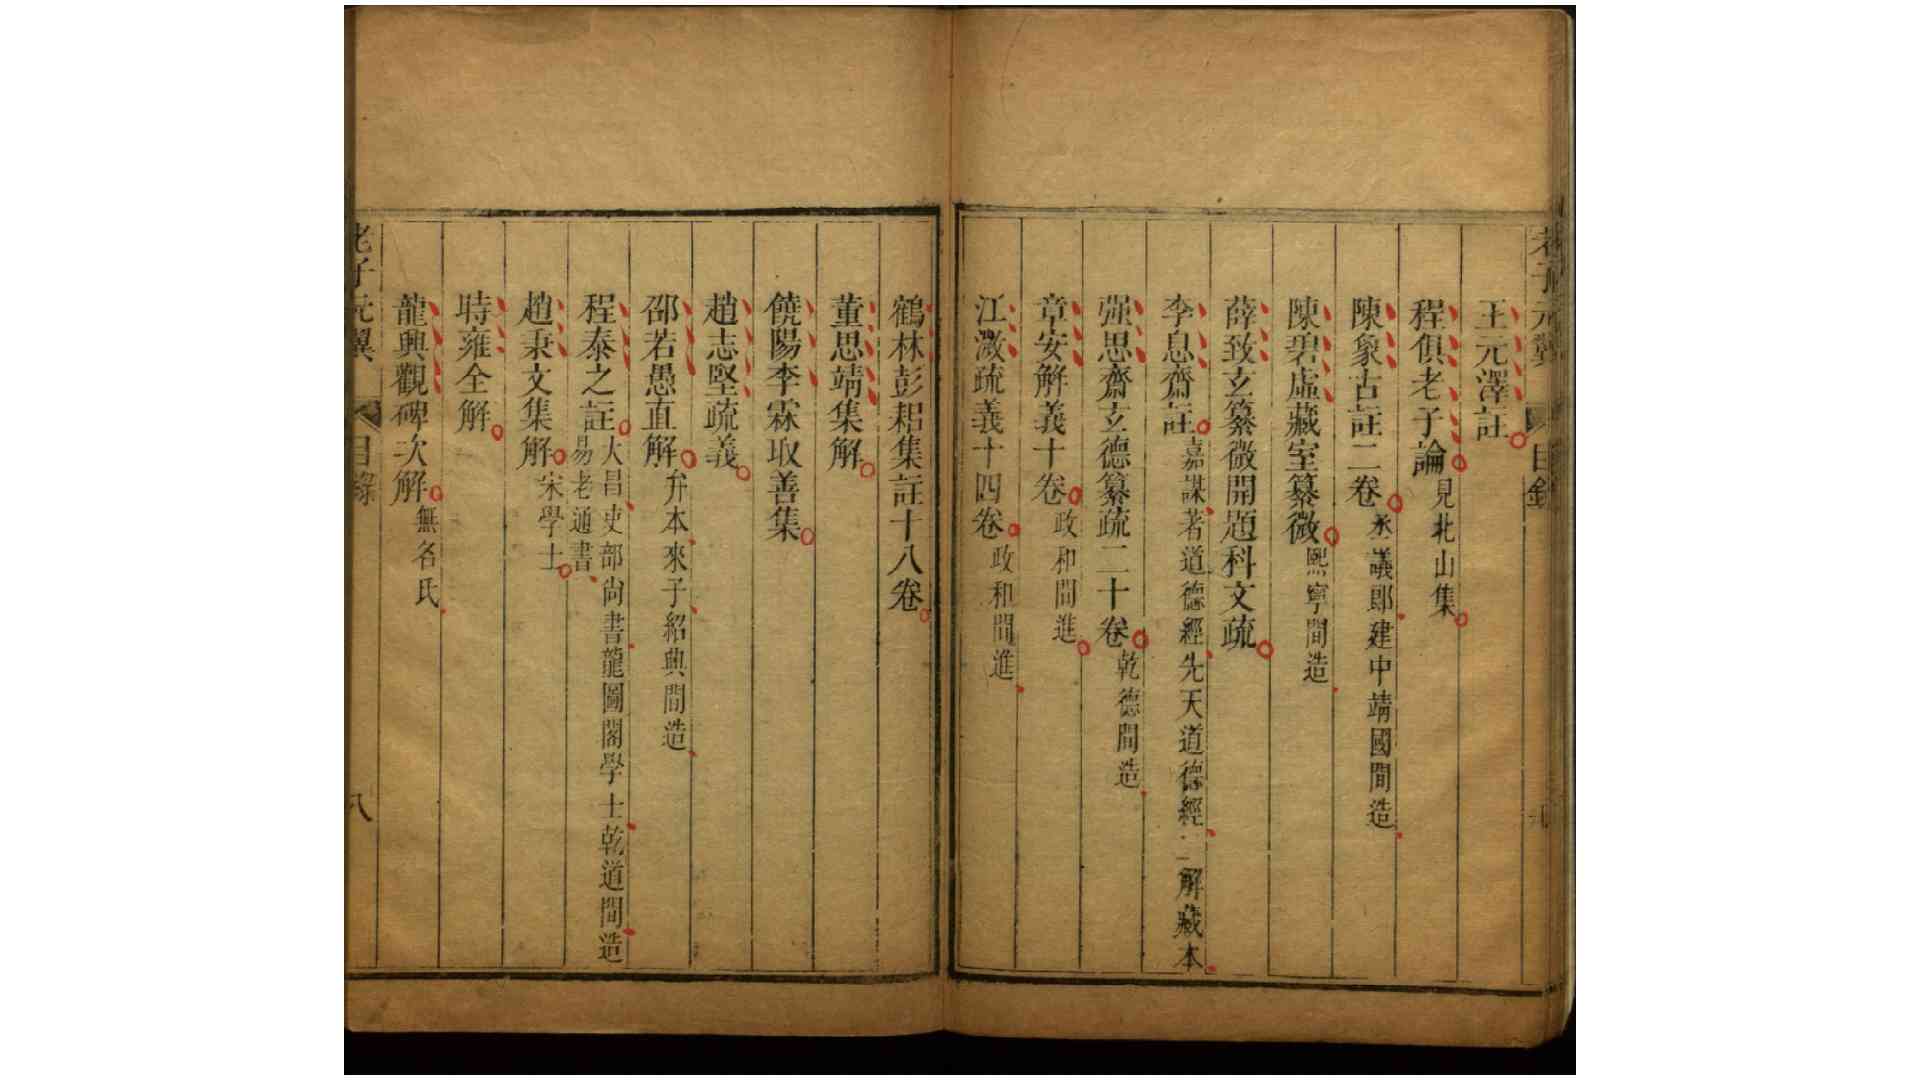 王元澤註
程俱老子論見北山集
陳象古註二卷丞議郎建中靖國間造
陳碧虛藏室纂微熙寧間造
薛致玄纂微開題科文疏
李息齋註嘉謀著道德經先天道德經二解藏本
强思齋玄德纂疏二十卷乾德間造
章安解義十卷政和間進
江澂疏義十四卷政和間進
鶴林彭耜集註十八卷
董思靖集解
饒陽李霖取善集
趙志堅疏義
邵若愚直解弁本來子紹興間造
程泰之註大昌吏部尚書龍圖閣學士乾道間造
易老通書
趙秉文集解宋學士
時雍全解
龍興觀碑次解無名氏
老子元翼
目錄
八